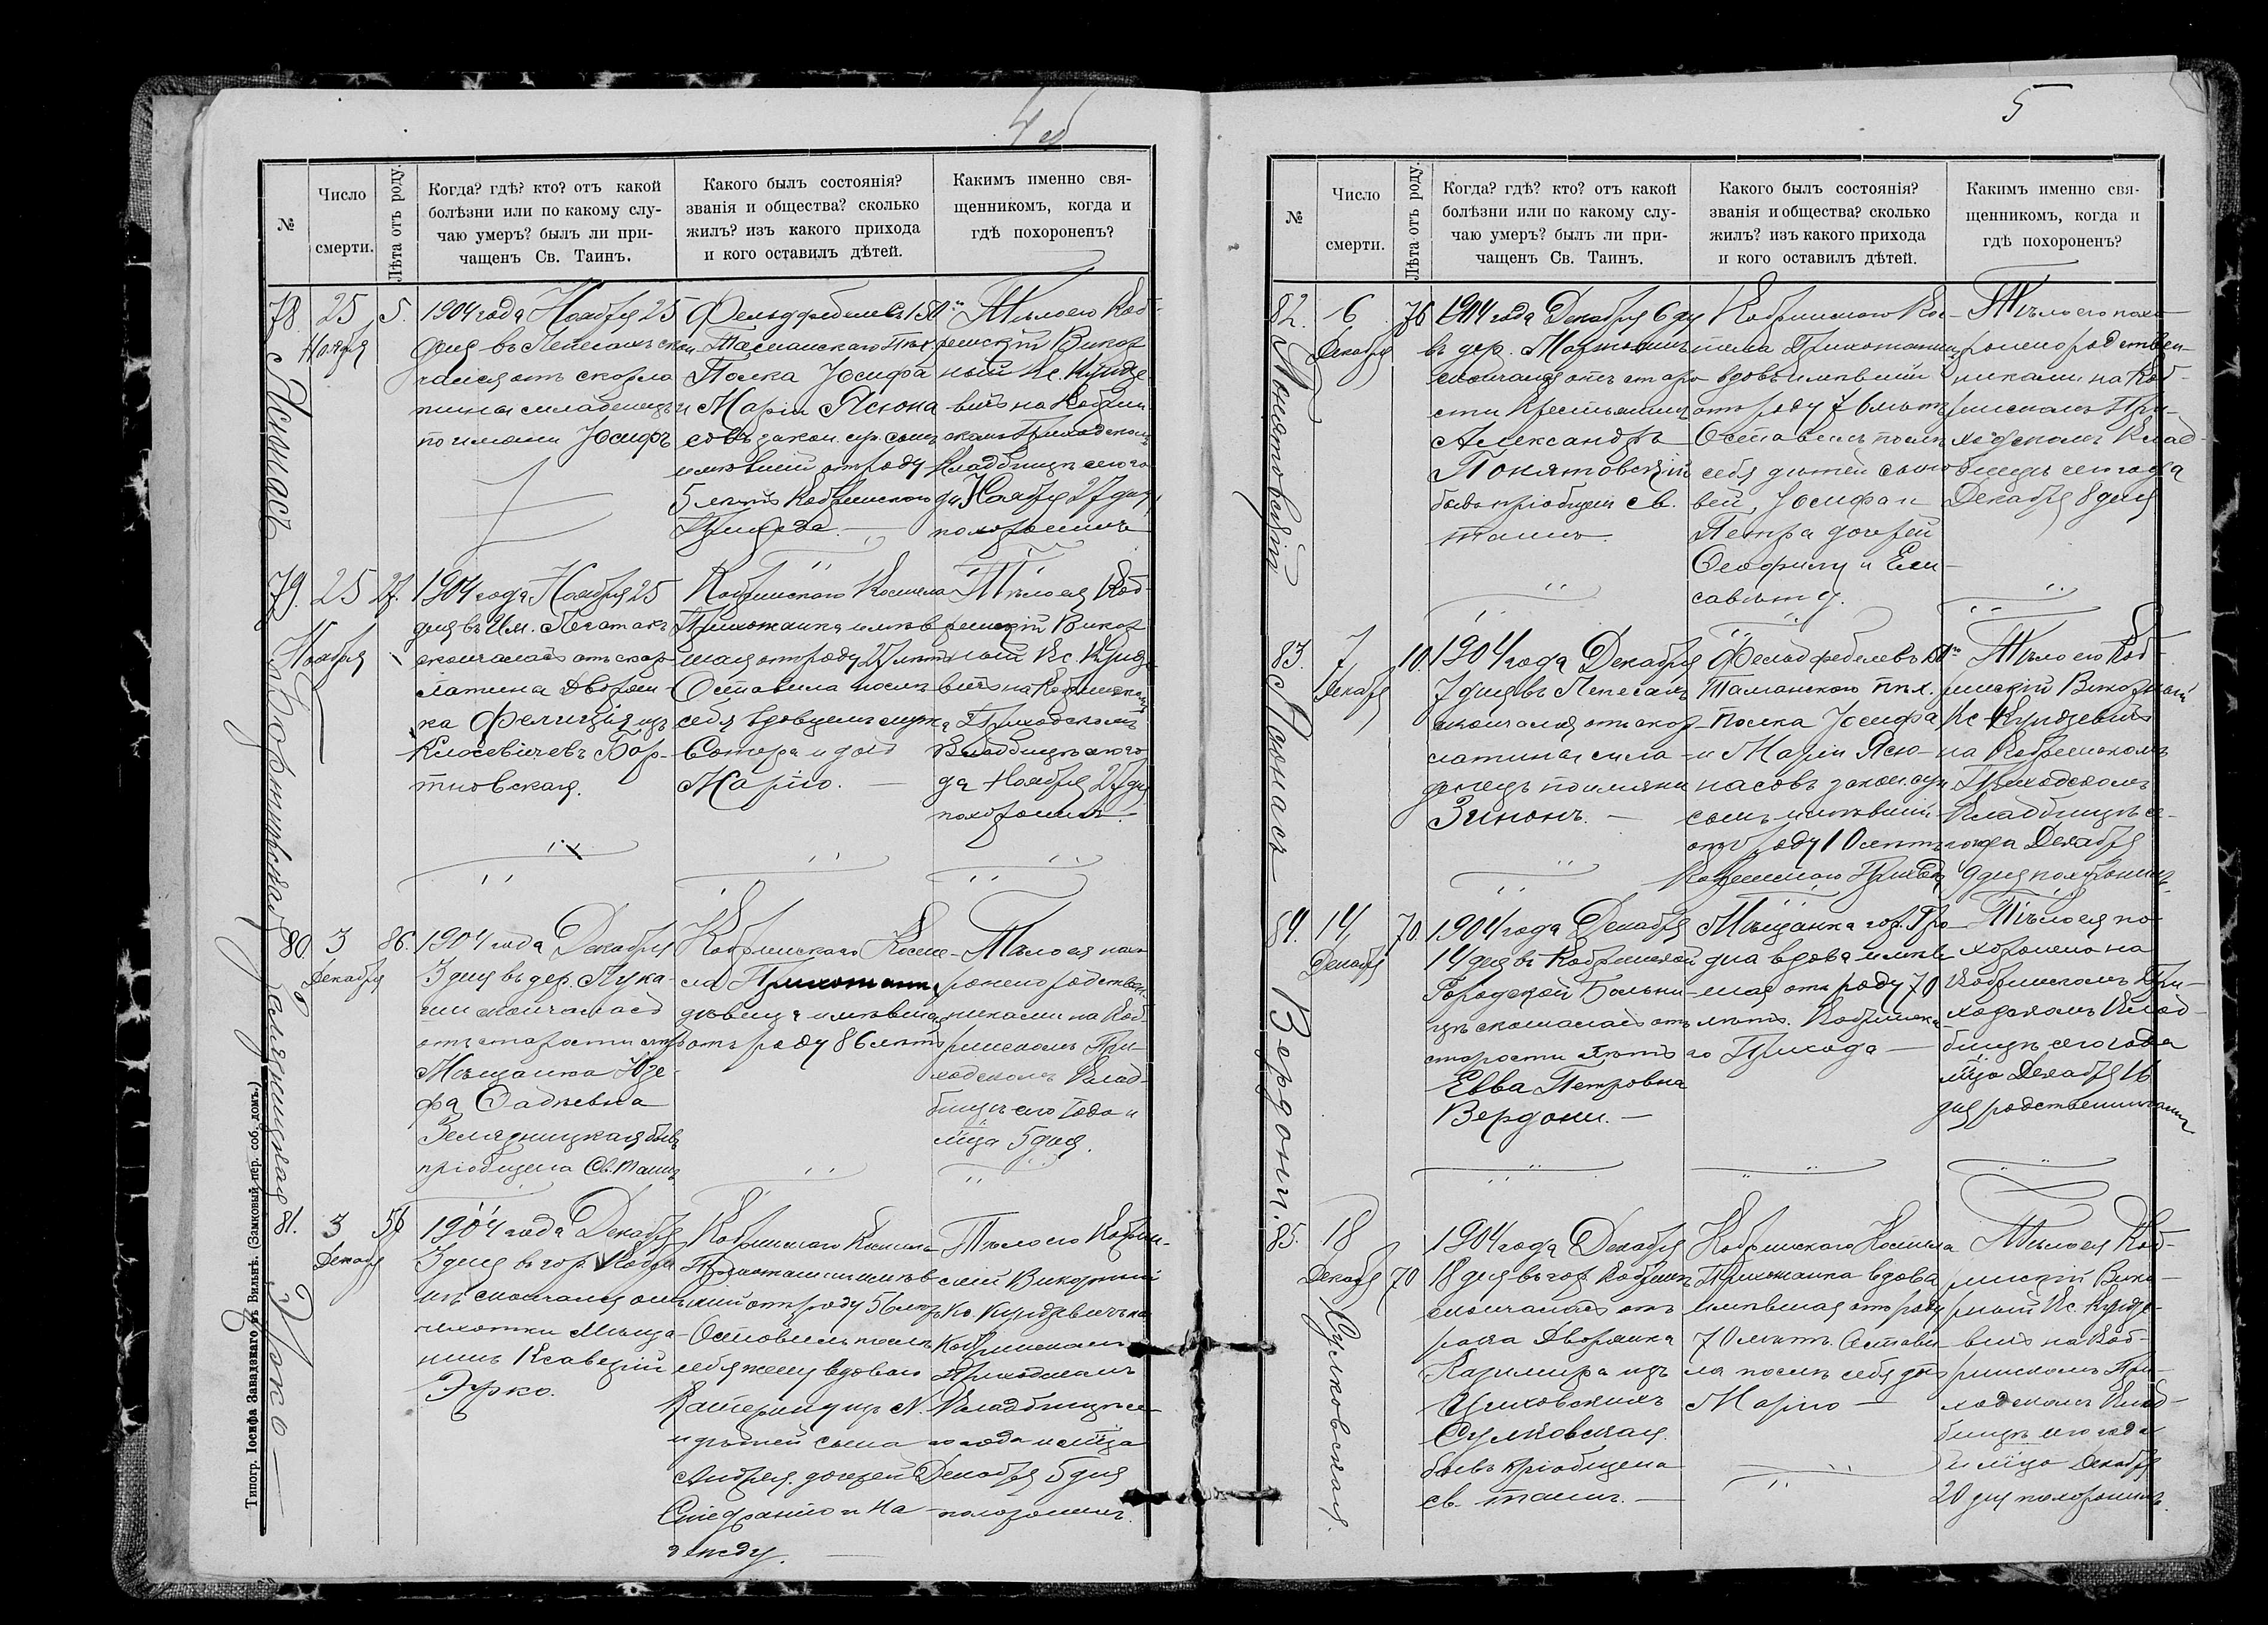 4 об
№
Число
смерти.
Лѣта отъ роду.
Когда? гдѣ? кто? отъ какой
болѣзни или по какому слу-
чаю умеръ? былъ ли при-
чащенъ Св. Таинъ.
Какого былъ состоянія?
званія и общества? сколько
жилъ? изъ какого прихода
и кого оставилъ дѣтей.
Какимъ именно свя-
щенникомъ, когда и
гдѣ похороненъ?
78.
Яснонасъ
25
Ноября
5.
1904 года Ноября 25
дня въ Пепесахъ скон
чался отъ скорла
тины младенецъ
по имени Юсифъ
Фельдфебелевъ 150го
Таманскаго Пѣх
Полка Юсифа
и Маріи Яснона
совъ закон. суп. сынъ
имѣвшій отъ роду
5 лѣтъ Кобринскаго
Прихода.
Тѣло его Коб-
ринскій Викар
ный Кс. Кундзе
вичъ на Кобрин
скомъ Приходскомъ
Кладбищѣ сего го
да Ноября 27 дня
похоронилъ
79.
Бортновская
25
Ноября
27.
1904 года Ноября 25
дня въ Им.
скончалась отъ скар-
латина Дворян-
ка Фелиція изъ
Клосевичевъ Бор-
тновская.
Кобринскаго Костела
Прихожанка имѣв
шая отъ роду 27 лѣтъ
Оставила послѣ
себя вдовцемъ мужа
и дочь
Марію.
Тѣло ея Коб-
ринскій Викар
ный Кс. Кундзе
вичъ на Кобринскомъ
Приходскомъ
Кладбищѣ сего го
да Ноября 27 дня
похоронилъ.
80.
Зелязницкая
3
Декабря
86.
1904 года Декабря
3 дня въ дер. Лука-
ши скончалась
отъ старости лѣтъ
Мѣщанка Юзе-
фа Фадѣевна
Зелязницкая бывъ
пріобщена Св. Таинъ
Кобринскаго Косте-
ла Прихожанка
дѣвица имѣвшая
отъ роду 86 лѣтъ
Тѣло ея похо
ронено родствен
никами на Коб-
ринскомъ При-
ходскомъ Клад-
бищѣ сего года и
м̃ца 5 дня.
81.
Эрко
3
Декабря
56
1904 года Декабря
3 дня въ гор. Кобри
нѣ скончался отъ
чахотки Мѣща-
нинъ Ксаверій
Эрко.
Кобринскаго Костела
Прихожанинъ имѣв-
шій отъ роду 56 лѣтъ
Оставилъ послѣ
себя жену вдовою
Катерину изъ N.
и дѣтей сына
Андрея, дочерей
Стефанію и На-
дежду.
Тѣло его Кобрин-
скій Викарный
Кс. Кундзевичъ на
Кобринскомъ
Приходскомъ
Кладбищѣ се-
го года и м̃ца
Декабря 5 дня
похоронилъ.
Типогр. Іосифа Завадзкаго въ Вильнѣ. (Замковый пер. соб. домъ.)
5
№
Число
смерти.
Лѣта отъ роду.
Когда? гдѣ? кто? отъ какой
болѣзни или по какому слу-
чаю умеръ? былъ ли при-
чащенъ Св. Таинъ.
Какого былъ состоянія?
званія и общества? сколько
жилъ? изъ какого прихода
и кого оставилъ дѣтей.
Какимъ именно свя-
щенникомъ, когда и
гдѣ похороненъ?
82.
Понятовскій
6
Декабря
76
1904 года Декабря 6 дня
въ дер.
скончался отъ старо
сти Крестьянинъ
Александръ
Понятовскій
бывъ пріобщенъ св.
таинъ.
Кобринскаго Кос-
тела Прихожанинъ
вдовъ имѣвшій
отъ роду 76 лѣтъ
Оставилъ послѣ
себя дѣтей сыно
вей, Юсифа и
Петра дочерей
Теофилу и Ели-
савету.
Тѣло его похо
ронено родствен-
никами на Коб-
ринскомъ При-
ходскомъ Клад-
бищѣ сего года
Декабря 8 дня
83.
Яснонасъ
7
Декабря
10.
1904 года Декабря
7 дня въ Пепесахъ
скончался отъ скор-
латины мла-
денецъ по имени
Зинонъ.
Фельдфебелевъ 150го
Таманскаго пѣх.
Полка Юсифа
и Маріи Ясно-
насовъ закон. суп
сынъ имѣвшій
отъ роду 10 лѣтъ
Кобринскаго Прихода
Тѣло его Коб-
ринскій Викарный
Кс Кундзевичъ
на Кобринскомъ
Приходскомъ
Кладбищѣ се-
го года Декабря
9 дня похоронилъ.
84.
Вердони.
14
Декабря
70.
1904 года Декабря
14 дня въ Кобринской
Городской Больни-
цѣ скончалась отъ
старости лѣтъ
Евва Петровна
Вердони.
Мѣщанка гор. Гро-
дна вдова имѣв
шая отъ роду 70
лѣтъ. Кобринска
го Прихода
Тѣло ея по-
хоронено на
Кобринскомъ При-
ходскомъ Клад-
бищѣ сего года
м̃ца Декабря 16
дня родственниками
85.
Сулковская.
18
Декабря
70
1904 года Декабря
18 дня въ гор. Кобринѣ
скончалась отъ
рака Дворянка
Казимира изъ
Сулковская
бывъ пріобщена
св. таинъ.
Кобринскаго Костела
Прихожанка вдова
имѣвшая отъ роду
70 лѣтъ. Остави-
ла послѣ себя дочь
Марію
Тѣло ея Коб-
ринскій Вика-
рный Кс Кундзе-
вичъ на Коб-
ринскомъ При-
ходскомъ Клад-
бищѣ сего года
и м̃ца Декабря
20 дня похоронилъ.